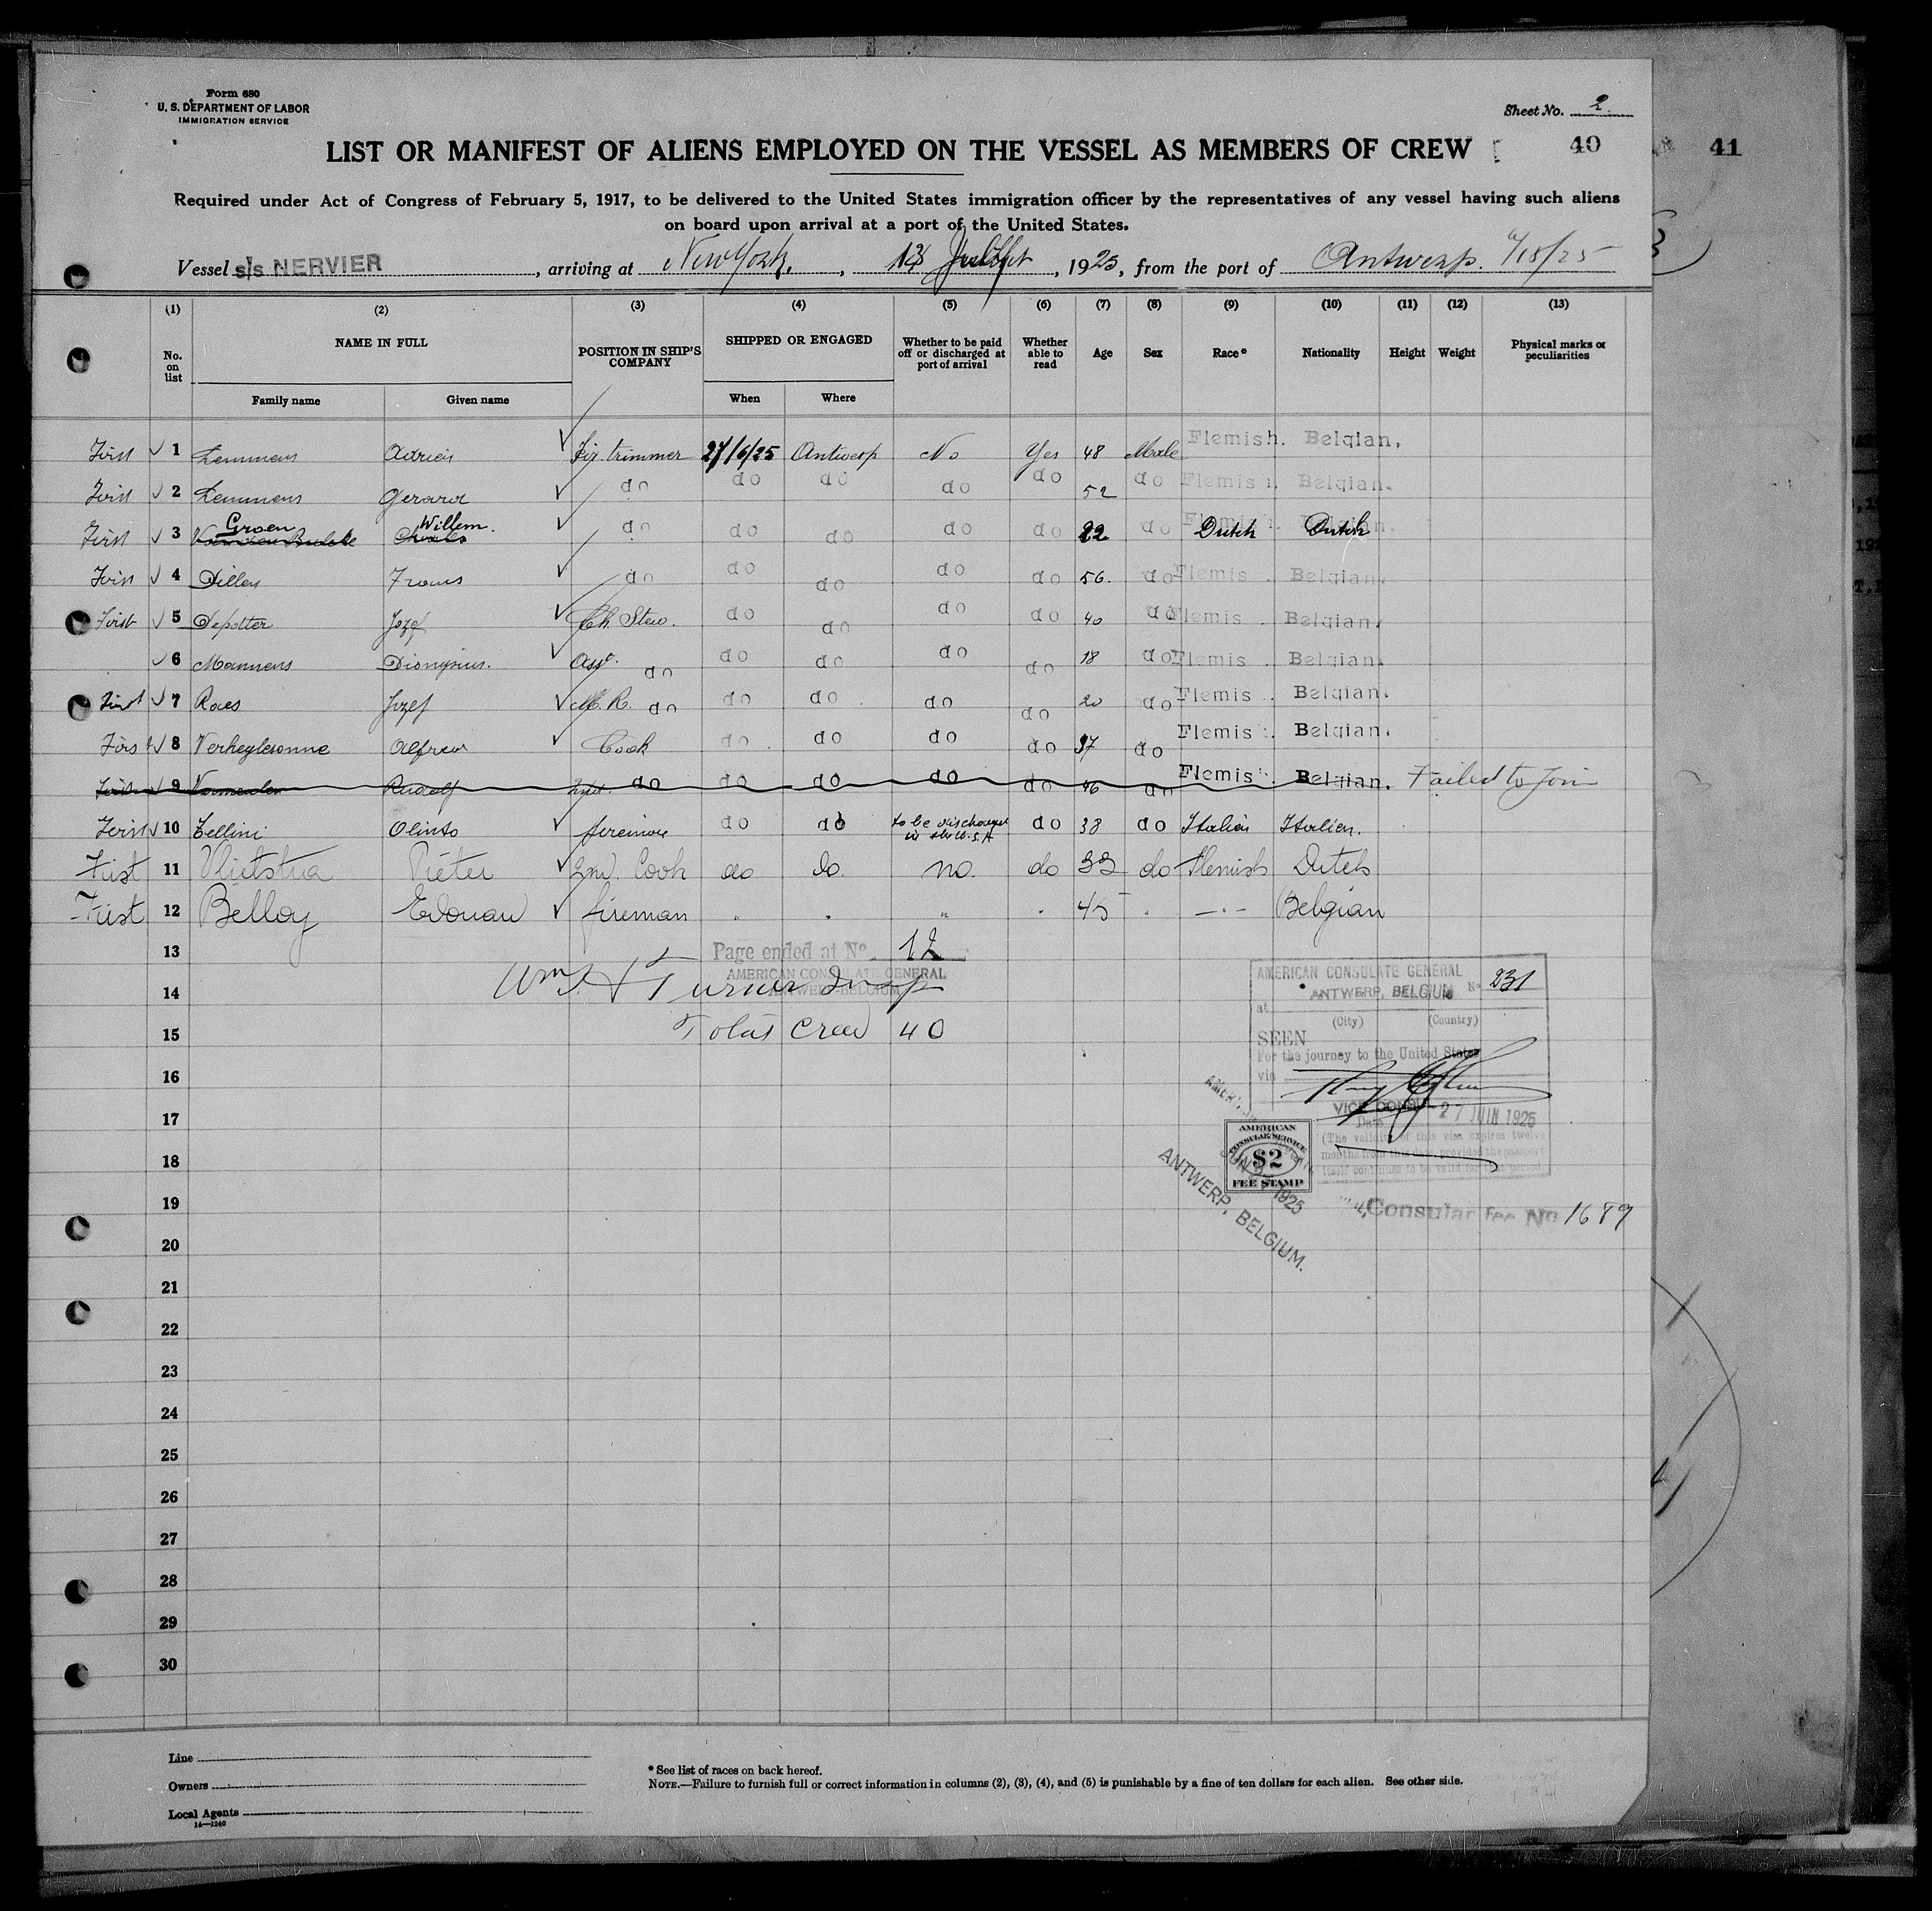 Form 680
U. S. DEPARTMENT OF LABOR
IMMIGRATION SERVICE
Sheet No. 2
LIST OR MANIFEST OF ALIENS EMPLOYED ON THE VESSEL AS MEMBERS OF CREW 40 41
Required under Act of Congress of February 5, 1917, to be delivered to the United States immigration officer by the representatives of any vessel having such aliens
on board upon arrival at a port of the United States.
Vessel s/s NERVIER, arriving at New York, 13, 1925, from the port of Antwerp.
(1) (2) (3) (4) (5) (6) (7) (8) (9) (10) (11) (12) (13)
No. on list NAME IN FULL POSITION IN SHIP'S COMPANY SHIPPED OR ENGAGED Whether to be paid off or discharged at port of arrival Whether able to read Age Sex Race* Nationality Height Weight Physical marks or peculiarities
Family name Given name When Where
First 1 Lemmens Adrien Fir. trimmer 27/6/25 Antwerp No Yes 48 Male Flemish. Belgian.
First 2 Lemmens Gerard do do do do do 52 do Flemish. Belgian.
First 3 Groen Willem. do do do do do 22 do Dutch Dutch
First 4 Dillen Frans do do do do do 56. do Flemis. Belgian.
First 5 Depotter Jozef Ch. Stew. do do do do 40 do Flemis. Belgian.
6 Mannens Dionysius. Asst. do do do do do 18 do Flemis. Belgian.
First 7 Raes Jozef M. R. do do do do do 20 do Flemis. Belgian.
First 8 Verheylesonne Alfred Cook do do do do 37 do Flemis. Belgian.
First 9 Vermeulen Rudolf do do do do do 46 do Flemish. Belgian. Failed to Join
First 10 Olinto fireman do do to be discharged in the U.S.A do 38 do Italien Italien.
First 11 Vlietstra Pieter 2nd. Cook do do. no. do 33 do Flemish Dutch
First 12 Belloy Edouard fireman " " " " 45 " —"— Belgian
13 Page ended at No. 12
AMERICAN CONSULATE GENERAL
ANTWERP-BELGIUM
14 Wm H Turner Insp
15 Total Crew 40
AMERICAN CONSULATE GENERAL
at ANTWERP, BELGIUM No 231
(City) (Country)
SEEN
For the journey to the United States
via
VICE CONSUL
Date 27 JUIN 1925
(The validity of this visa expires twelve
months from this date, provided the passport
itself continues to be valid for that period.
16
17
18
19
20
21
22
23
24
25
26
27
28
29
30
AMERICAN
CONSULAR SERVICE
$2
FEE STAMP
1925
ANTWERP, BELGIUM.
Consular Fee No 1689
Line
Owners
Local Agents
14—1240
* See list of races on back hereof.
NOTE.—Failure to furnish full or correct information in columns (2), (3), (4), and (5) is punishable by a fine of ten dollars for each alien. See other side.